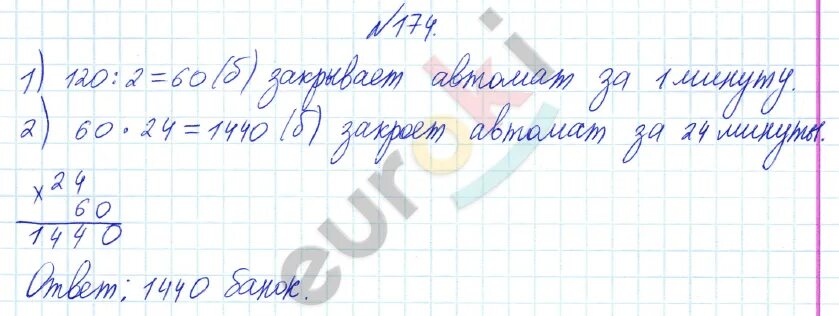 №174.
1) 120:2=60(б) закрывает автомат за 1 минуту.
2) 60·24=1440(б) закроет автомат за 24 минуты.
×24
60
1440
Ответ: 1440 банок.
euroki